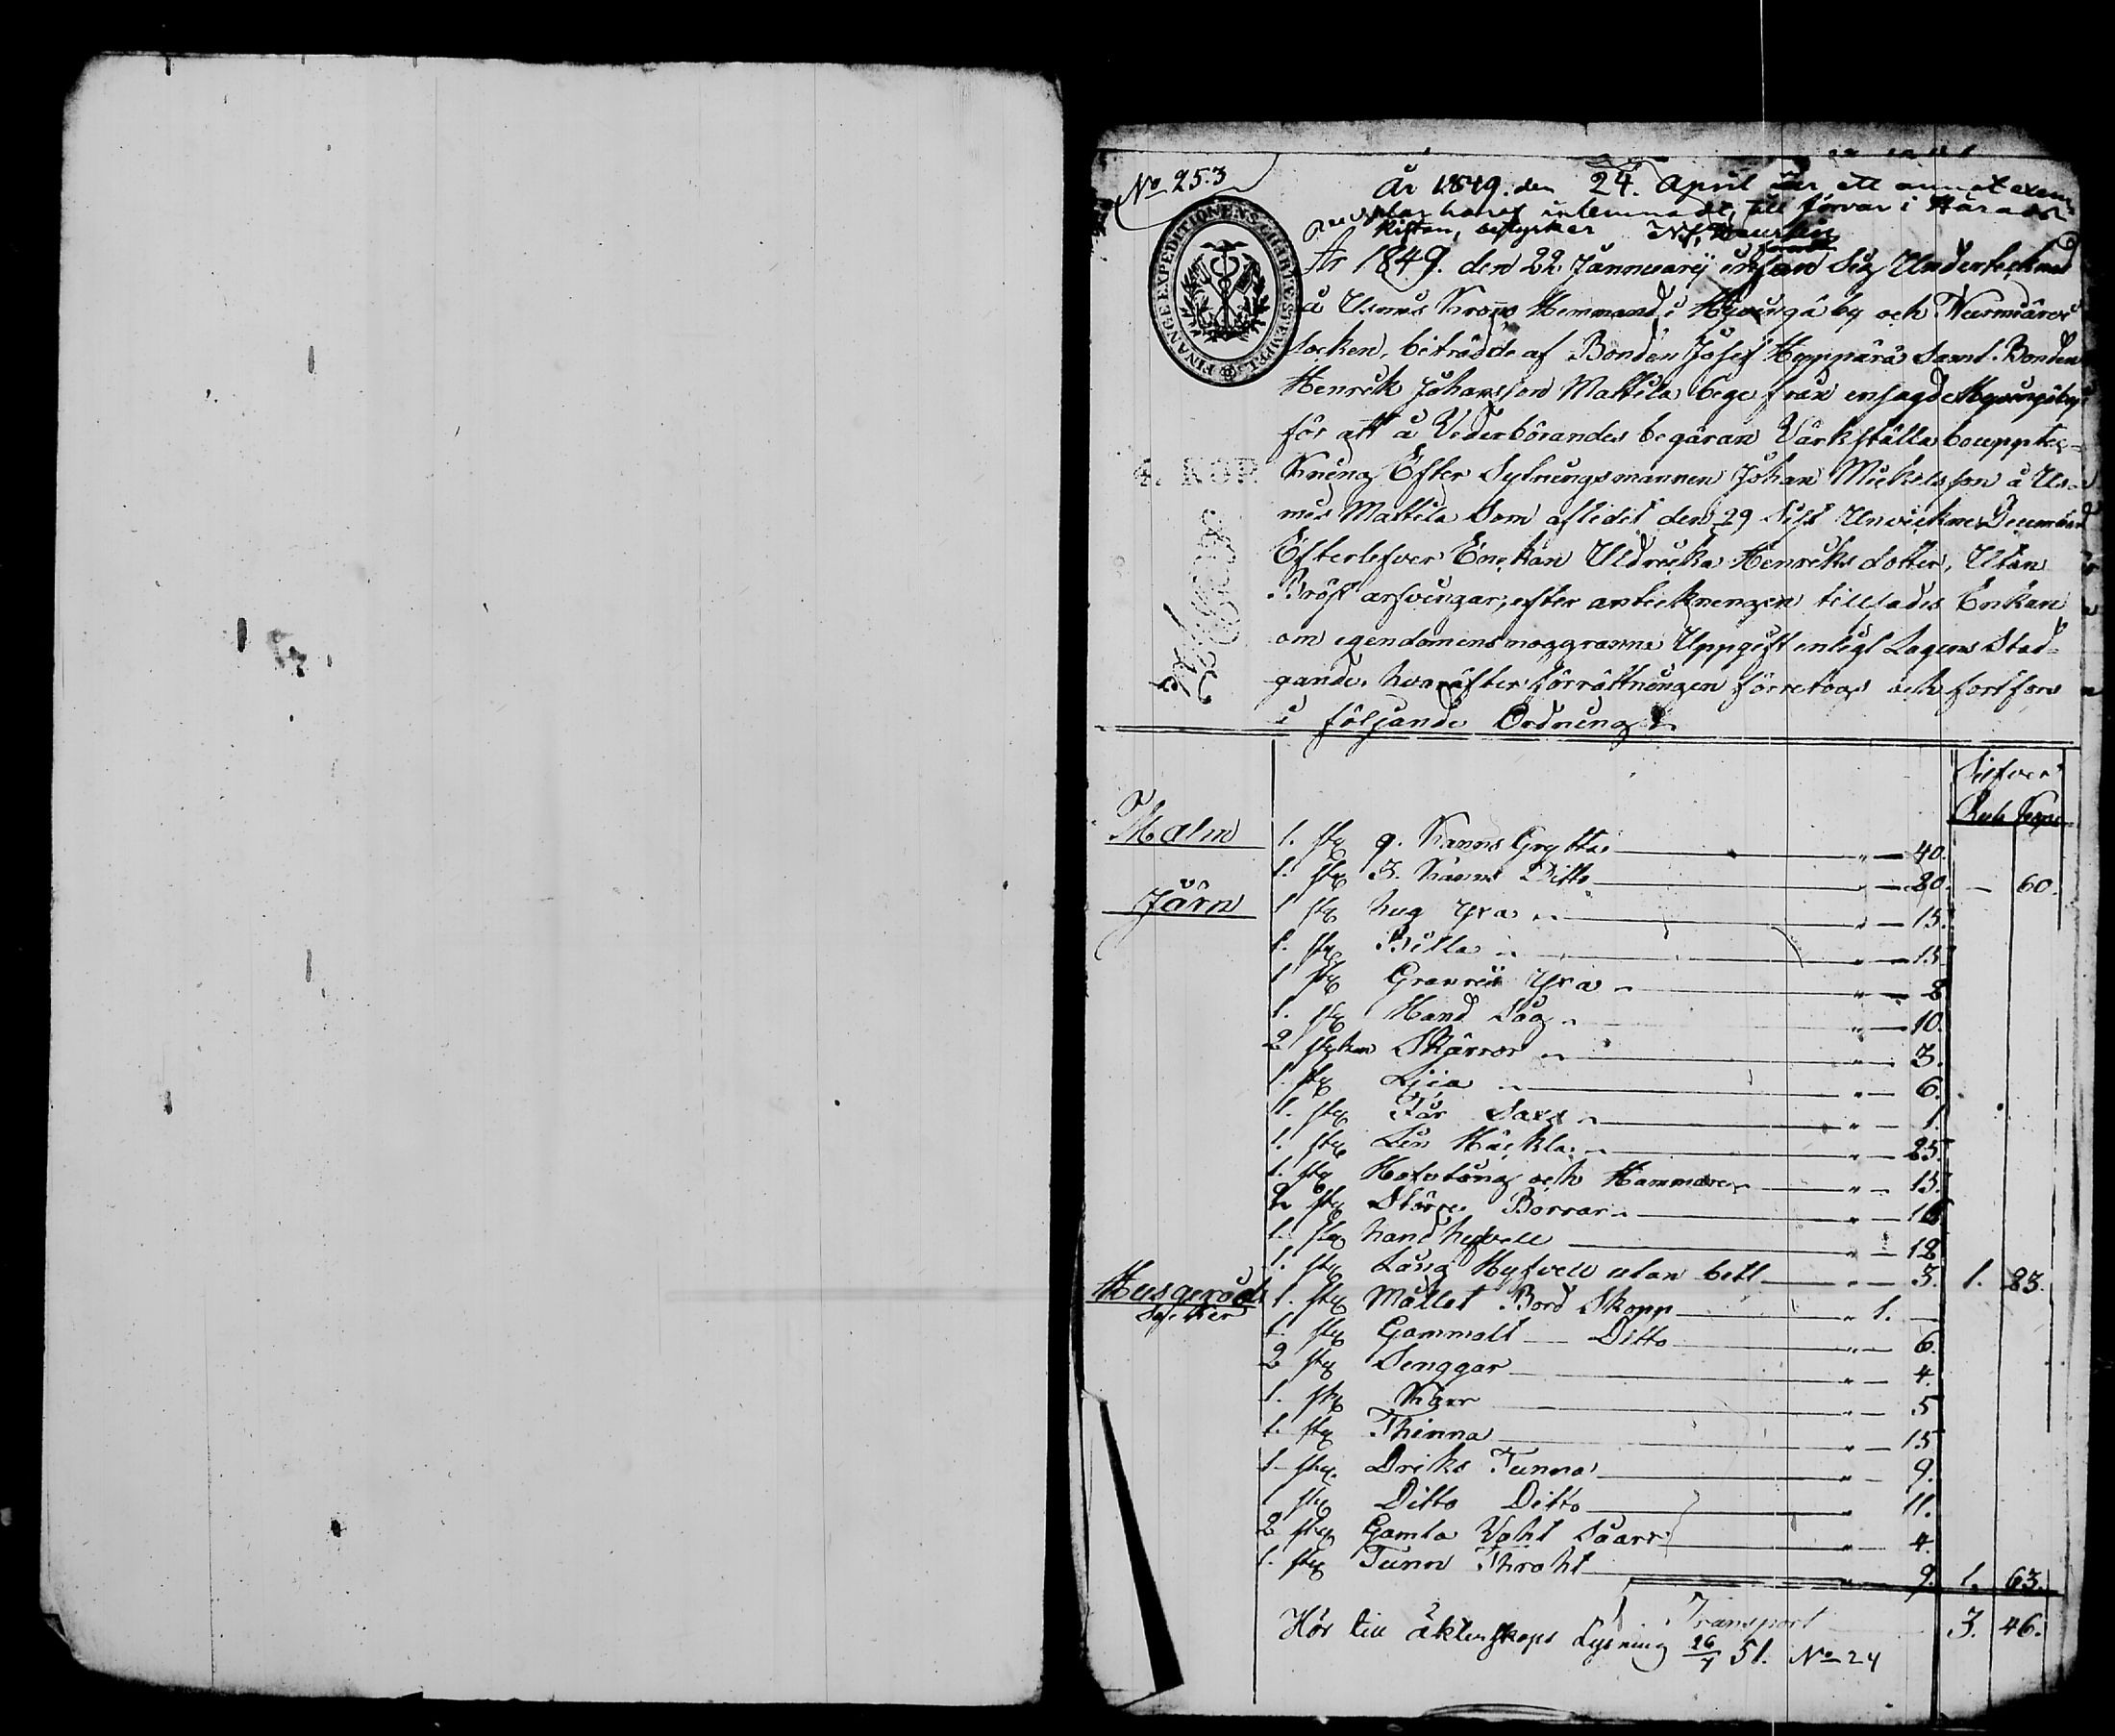 No 253
År 1849. den 24. April är ett annat exem-
plar häraf inlemnadt, till förvar i Härads
kistan, betyger
FINANCE EXPEDITIONENS CHARTÆ STEMPEL
År 1849. den 22 Jannuarij infan Sig Undertecknad
å Usmus Krono Hemmand i Hyvingä by och Nurmijärvi
Socken, biträdde af Bonden Josef Hyppärä Samt Bonden
Henrik Johansson Mattila bege från ensagde Hyvingäby
för att å Vederbörandes begäran Värkställa boupptec-
4. KOP.
kning Efter Sytningsmannen Johan Mickelsson å Us-
mus Mattila Som aflidit den 29 Sist
Efterlefver Enckan Uldricka Henriksdotter, Utan
Bröst arfvingar, efter anteckningen tillsades Enkan
om egendomens noggranna Uppgift enligt Lagens Stad-
gande, hvaräfter förrättningen företogs och fortfors
i följande Ordning
Silfver
Rub Kope
Malm 1. stÿ 9. Kanns Grytta " — 40.
1. stÿ 3. Kanns Ditto " — 20. — 60.
Järn 1 stÿ hug yxa " — 15.
1. stÿ Billa " — 15
1 stÿ yxa " — 8
1. stÿ Hand Såg " — 10.
2 stÿken Skärror " — 3.
1. stÿ Ljia " — 6.
1. stÿ Får Saxs " — 1.
1. stÿ Lin Häckla " — 25.
1. stÿ Hoftång och Hammare " — 15.
2 stÿ Större Borrar " — 16
1. stÿ hand hyfvell " — 18
1. stÿ Lång Hyfvell utan bett " — 3. 1. 23.
Husgeråds 1. stÿ Mållat Bord Skopp " 1. —
Saker
1. stÿ Gammalt Ditto " — 6.
2 stÿ Senggar " — 4.
1. stÿ Karr " — 5
1. stÿ Thinna " — 15
1 stÿ Driks Tunna " — 9.
1 stÿ Ditto Ditto " 11.
2 stÿ Gamla Saarr " — 4.
1. stÿ Tunn " — 9. 1. 63.
Transport 3. 46.
Hör till äktenskaps Lysning 26/7 51. No 24